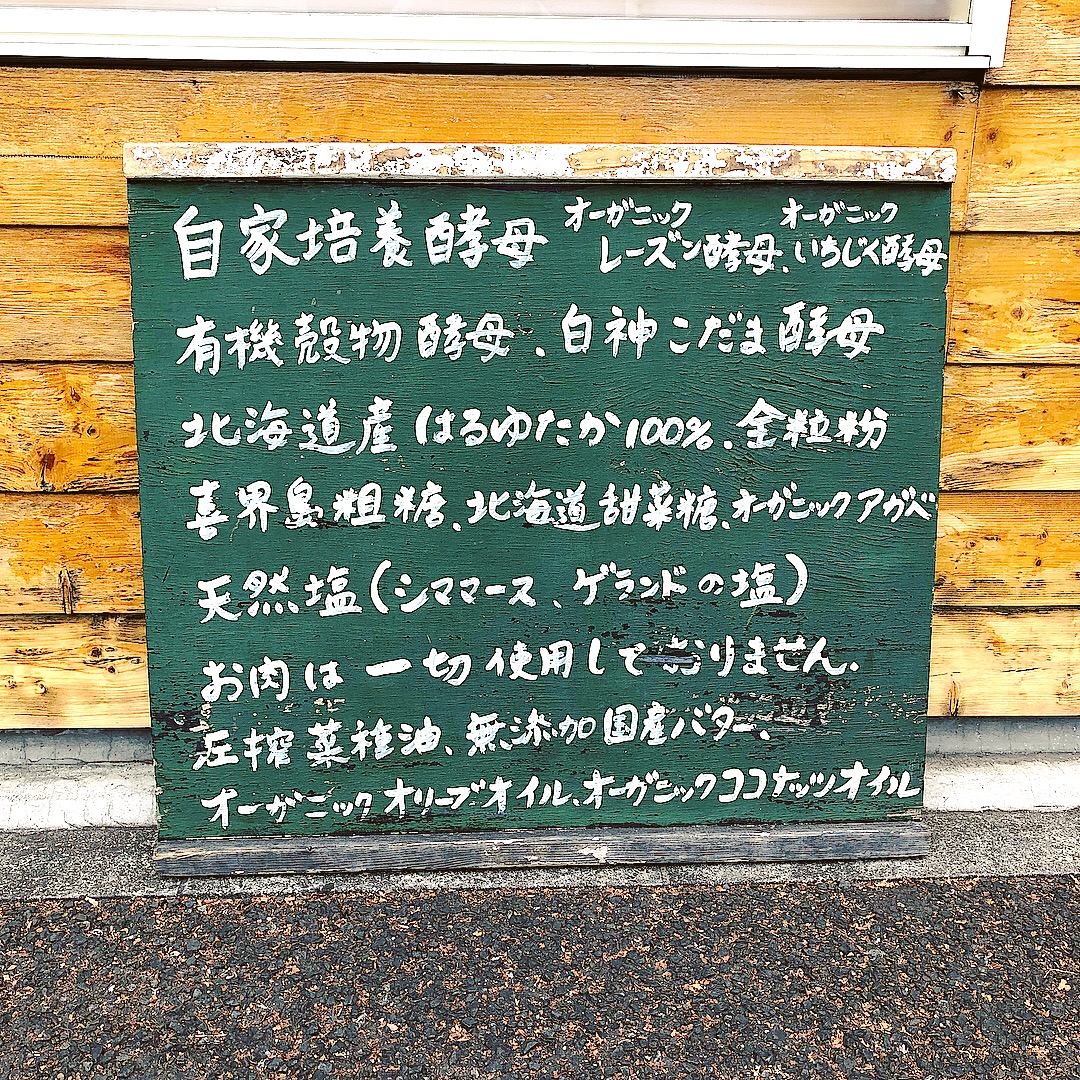 自家培養酵母 オーガニックレーズン酵母、オーガニックいちじく酵母
有機穀物酵母、白神こだま酵母
北海道産はるゆたか100%、全粒粉
喜界島粗糖、北海道甜菜糖、オーガニックアガベ
天然塩(シママース、ゲランドの塩)
お肉は一切使用しておりません.
圧搾菜種油、無添加国産バター、
オーガニックオリーブオイル、オーガニックココナッツオイル